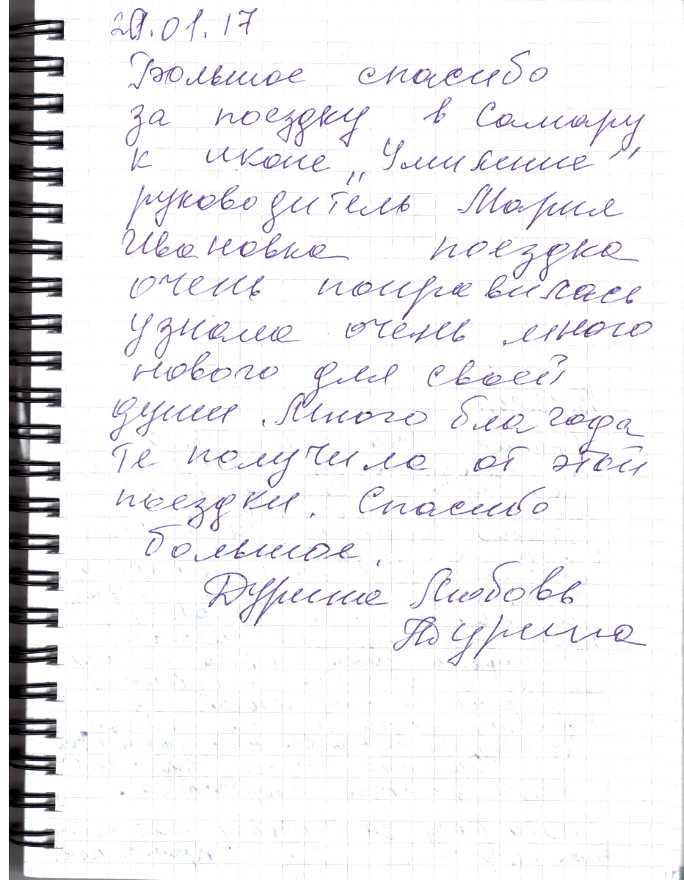 29.01.17
Большое спасибо
за поездку в Самару
к иконе „Умиление"
руководитель Мария
Ивановна поездка
очень понравилась
узнала очень много
нового для своей
души. Много благода
те получила от этой
поездки. Спасибо
большое.
Дурина Любовь
Дурина